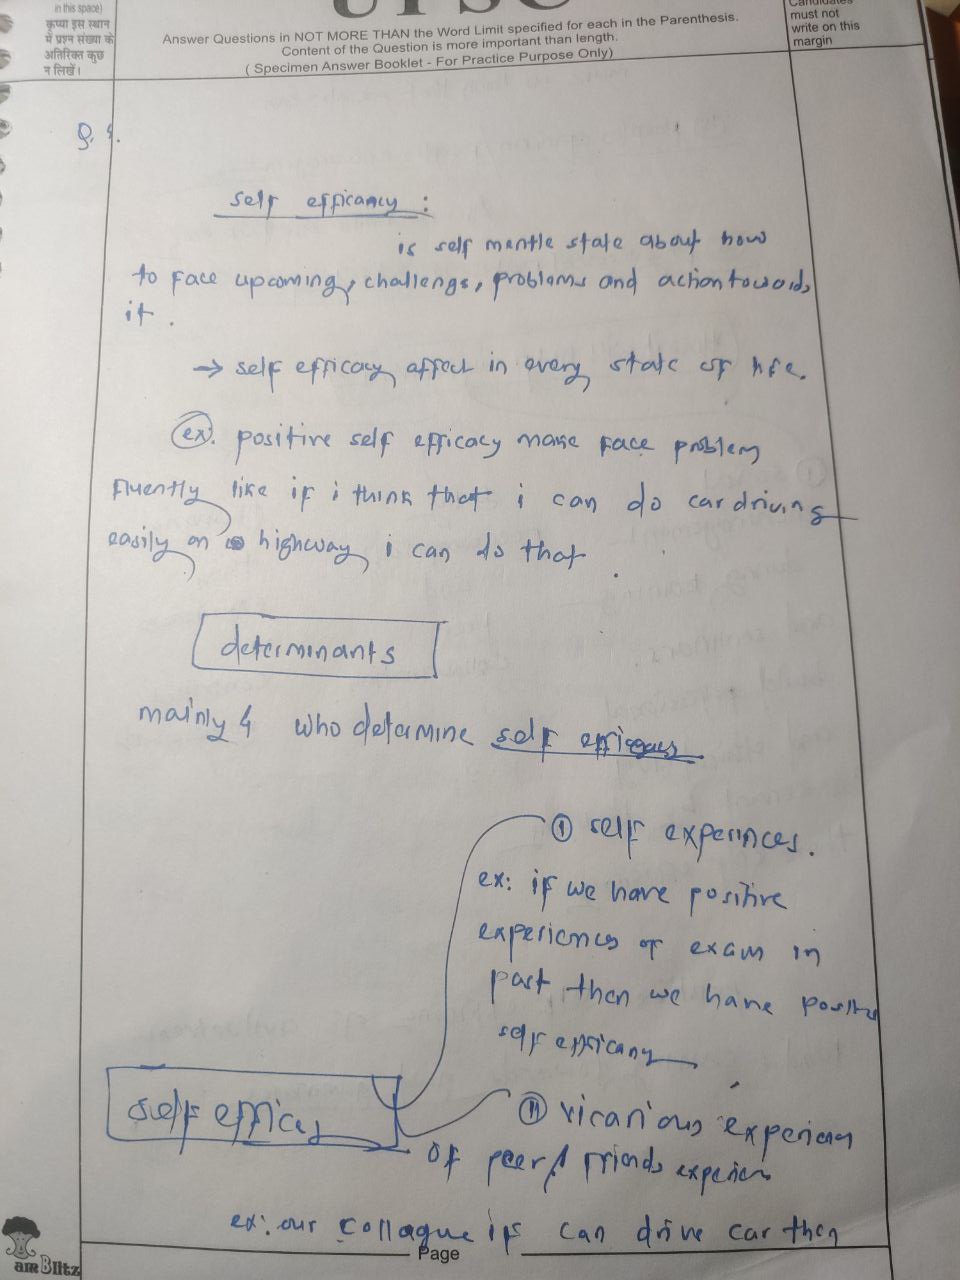 in this space)
कृप्या इस स्थान
में प्रश्न संख्या के
अतिरिक्त कुछ
न लिखें।
UPSC
Answer Questions in NOT MORE THAN the Word Limit specified for each in the Parenthesis.
Content of the Question is more important than length.
( Specimen Answer Booklet - For Practice Purpose Only)
Candidates
must not
write on this
margin
self efficancy :
is self mantle state about how
to face upcoming, challengs, problams and action towards
it.
→ self efficacy affect in every state of life.
ex. positive self efficacy make face problem
fluently like if i think that i can do car driving
easily on highway i can do that.
determinants
mainly 4 who determine self efficacy
① self experinces.
ex: if we have positive
experiences of exam in
past then we have positive
self efficany
self efficy
② vicarious experience
of peer/ friends experien
ex: our collague is can drive car then
Page
am Blitz